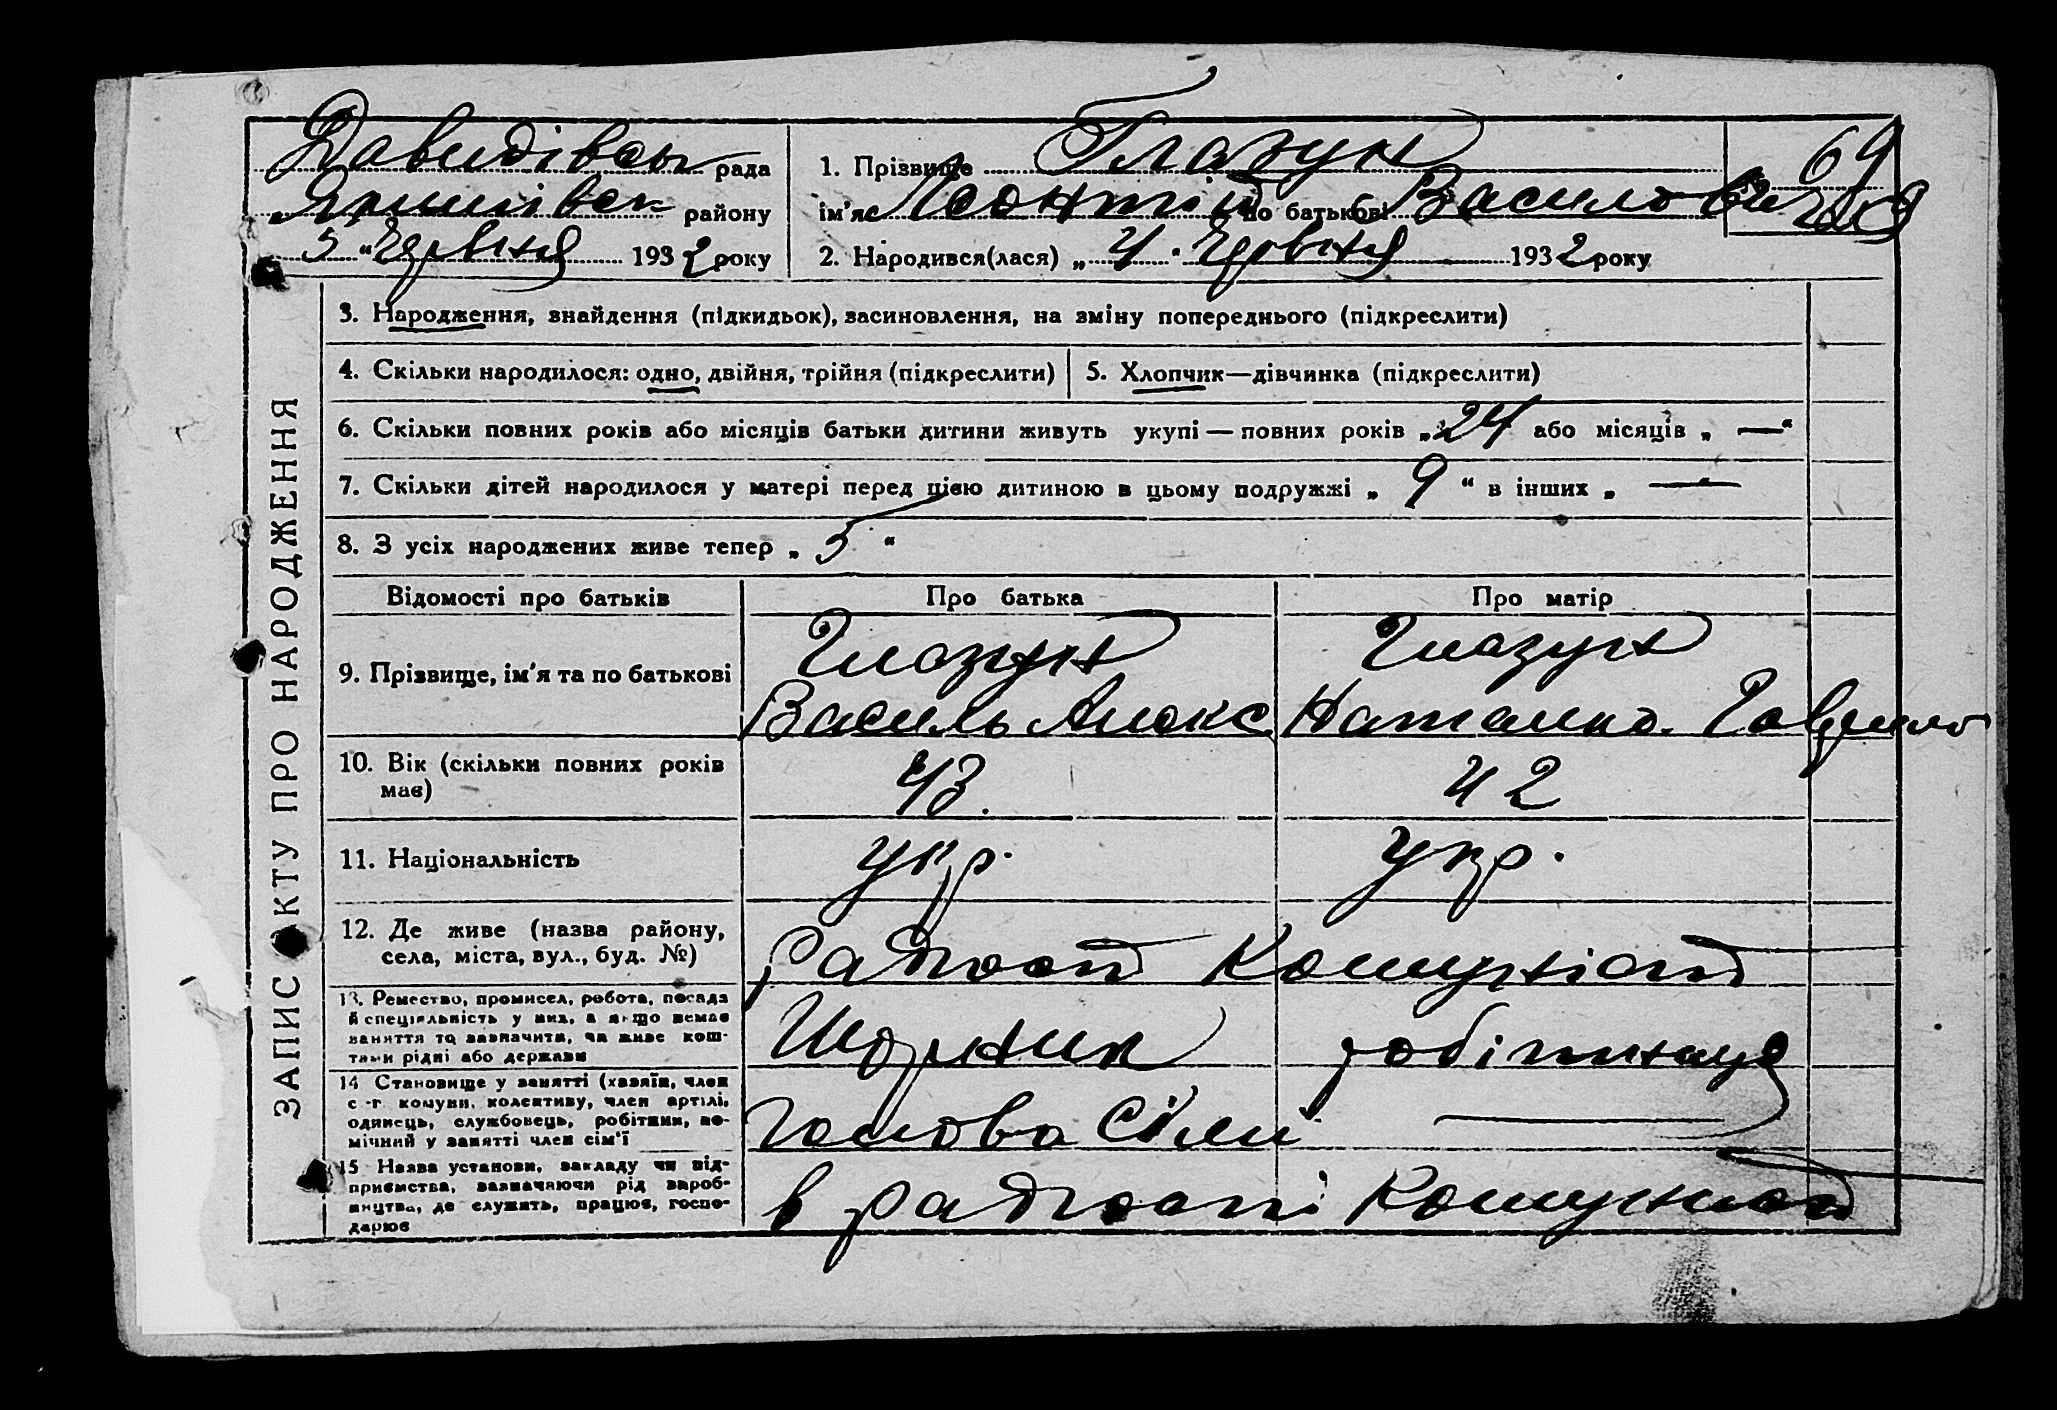 Давидівськ рада
Якимівськ району
5 "Червня 1932 року
1. Прізвище Глазун
ім'я Леонтій по батькові Васильович
69
2. Народився(лася) „ 4 " Червня 1932 року
ЗАПИС АКТУ ПРО НАРОДЖЕННЯ
3. Народження, знайдення (підкидьок), засиновлення, на зміну попереднього (підкреслити)
4. Скільки народилося: одно, двійня, трійня (підкреслити)
5. Хлопчик—дівчинка (підкреслити)
6. Скільки повних років або місяців батьки дитини живуть укупі — повних років „ 24 або місяців „ — "
7. Скільки дітей народилося у матері перед цією дитиною в цьому подружжі „ 9 " в інших „ — "
8. З усіх народжених живе тепер „ 5 "
Відомості про батьків Про батька Про матір
9. Прізвище, ім'я та по батькові
Глазун
Василь Алекс
Глазун
Наталка Гаврило
10. Вік (скільки повних років
має)
43. 42
11. Національність укр. укр.
12. Де живе (назва району,
села, міста, вул., буд. №)
радгосп Комуніст
13. Ремество, промисел, робота, посада
й спеціяльність у них, а якщо немає
заняття то зазначити, чи живе кош-
тами рідні або держави
Шорник робітниця
14 Становище у занятті (хазяїн, член
с.-г. комуни, колективу, член артілі,
одинець, службовець, робітник, по-
мічний у занятті член сім'ї
голова сімї —
15 Назва установи, закладу чи під-
приємства, зазначаючи рід вироб-
ництва, де служить, працює, госпо-
дарює
в радгоспі Комунист